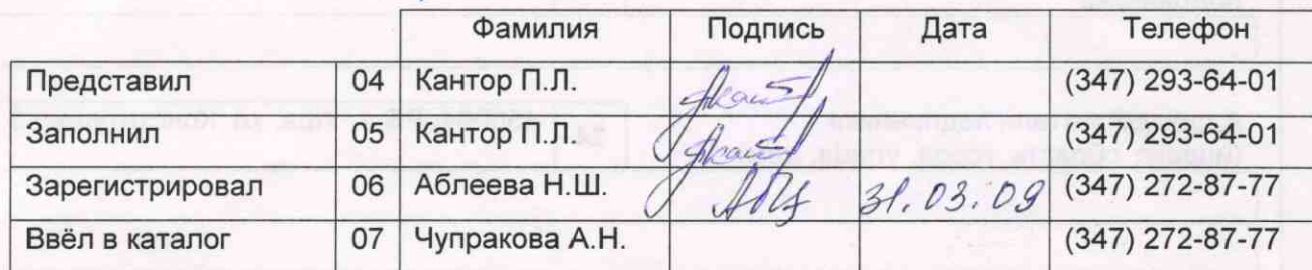 Фамилия Подпись Дата Телефон
Представил 04 Кантор П.Л. (347) 293-64-01
Заполнил 05 Кантор П.Л. (347) 293-64-01
Зарегистрировал 06 Аблеева Н.Ш. 31.03.09 (347) 272-87-77
Ввёл в каталог 07 Чупракова А.Н. (347) 272-87-77